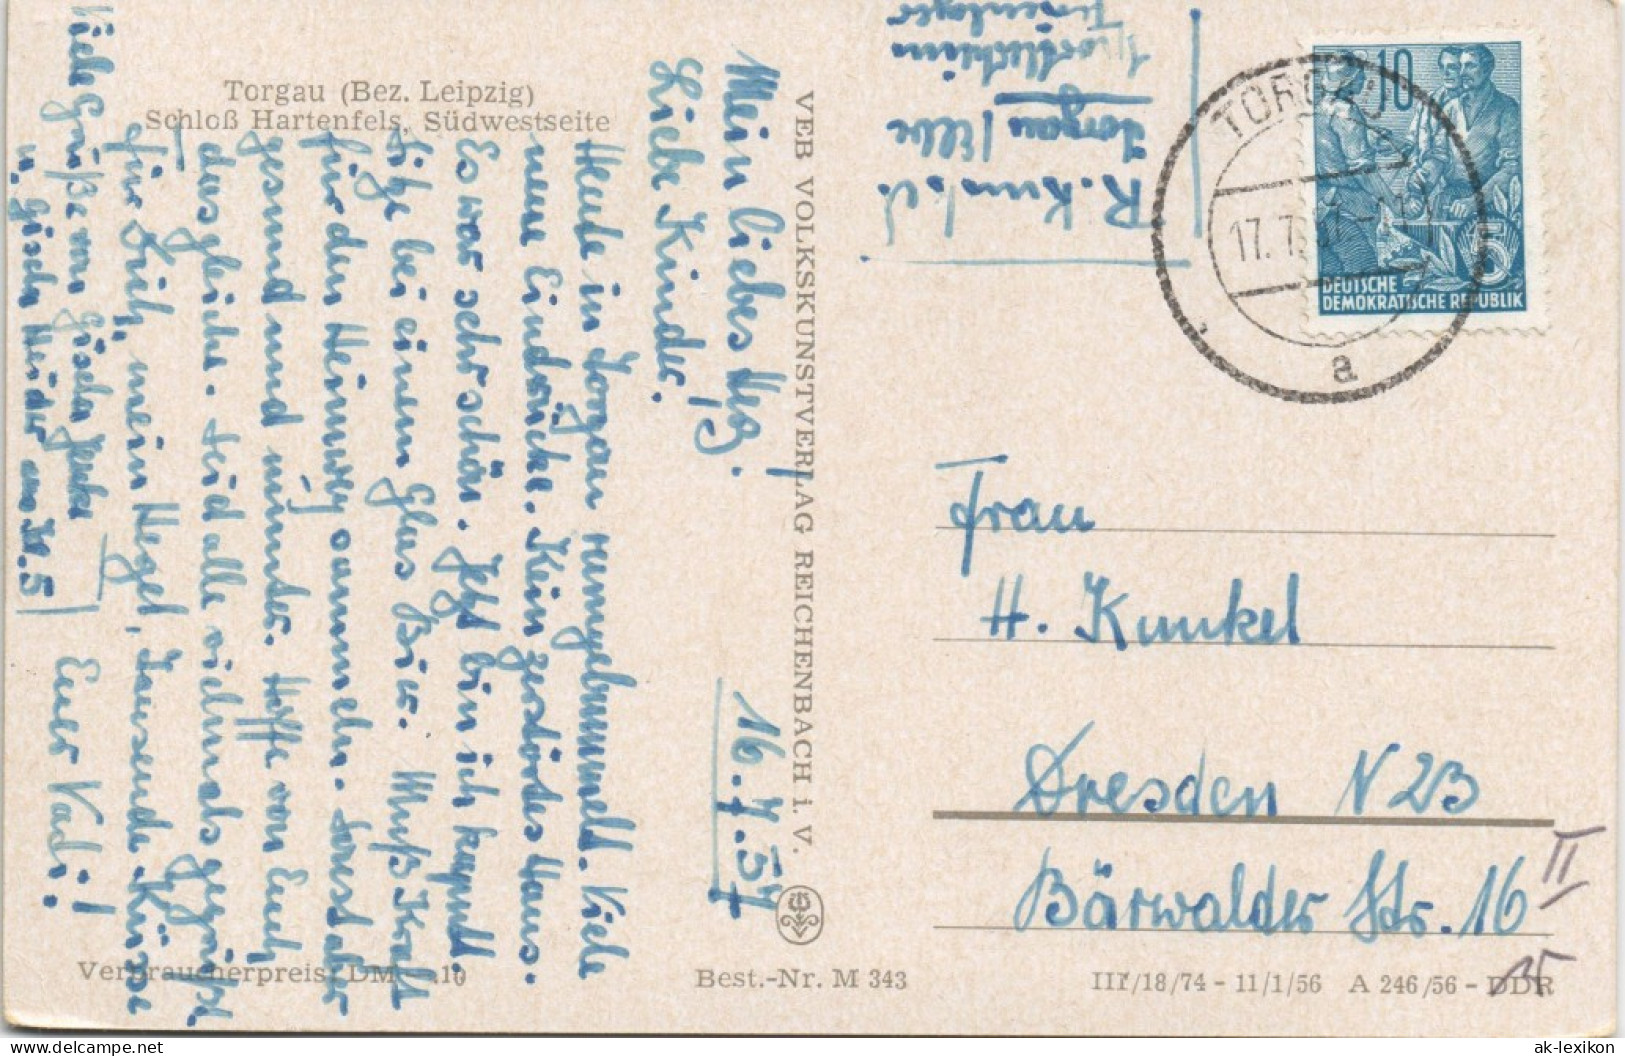 Torgau (Bez. Leipzig)
Schloß Hartenfels, Südwestseite
16.7.57
Mein liebes Heg.
Liebe Kinder.
Heute in Torgau rumgebummelt. Viele
neue Eindrücke. Kein zerstörtes Haus.
Es war sehr schön. Jetzt bin ich kaputt.
Sitze bei einem Glas Bier. Muß Kraft
für den Heimweg sammeln. Sonst aber
gesund und munter. Hoffe von Euch
dasgleiche. Seid alle vielmals gegrüßt.
Für Dich, mein Hegel, Tausende Küsse
Euer Vadi!
Viele Grüße von Gisela
u. Gisela Heider aus Kl. 5
VEB VOLKSKUNSTVERLAG REICHENBACH i. V.
R. Kunkel
Torgau / Elbe
Ferienlager
TORGAU
17.7.57
a
10
5
DEUTSCHE
DEMOKRATISCHE REPUBLIK
Frau
H. Kunkel
Dresden N 23
Bärwalder Str. 16
II
Verbraucherpreis: DM -.10
Best.-Nr. M 343
III/18/74 - 11/1/56 A 246/56 - DDR
ak-lexikon.com
delcampe.net